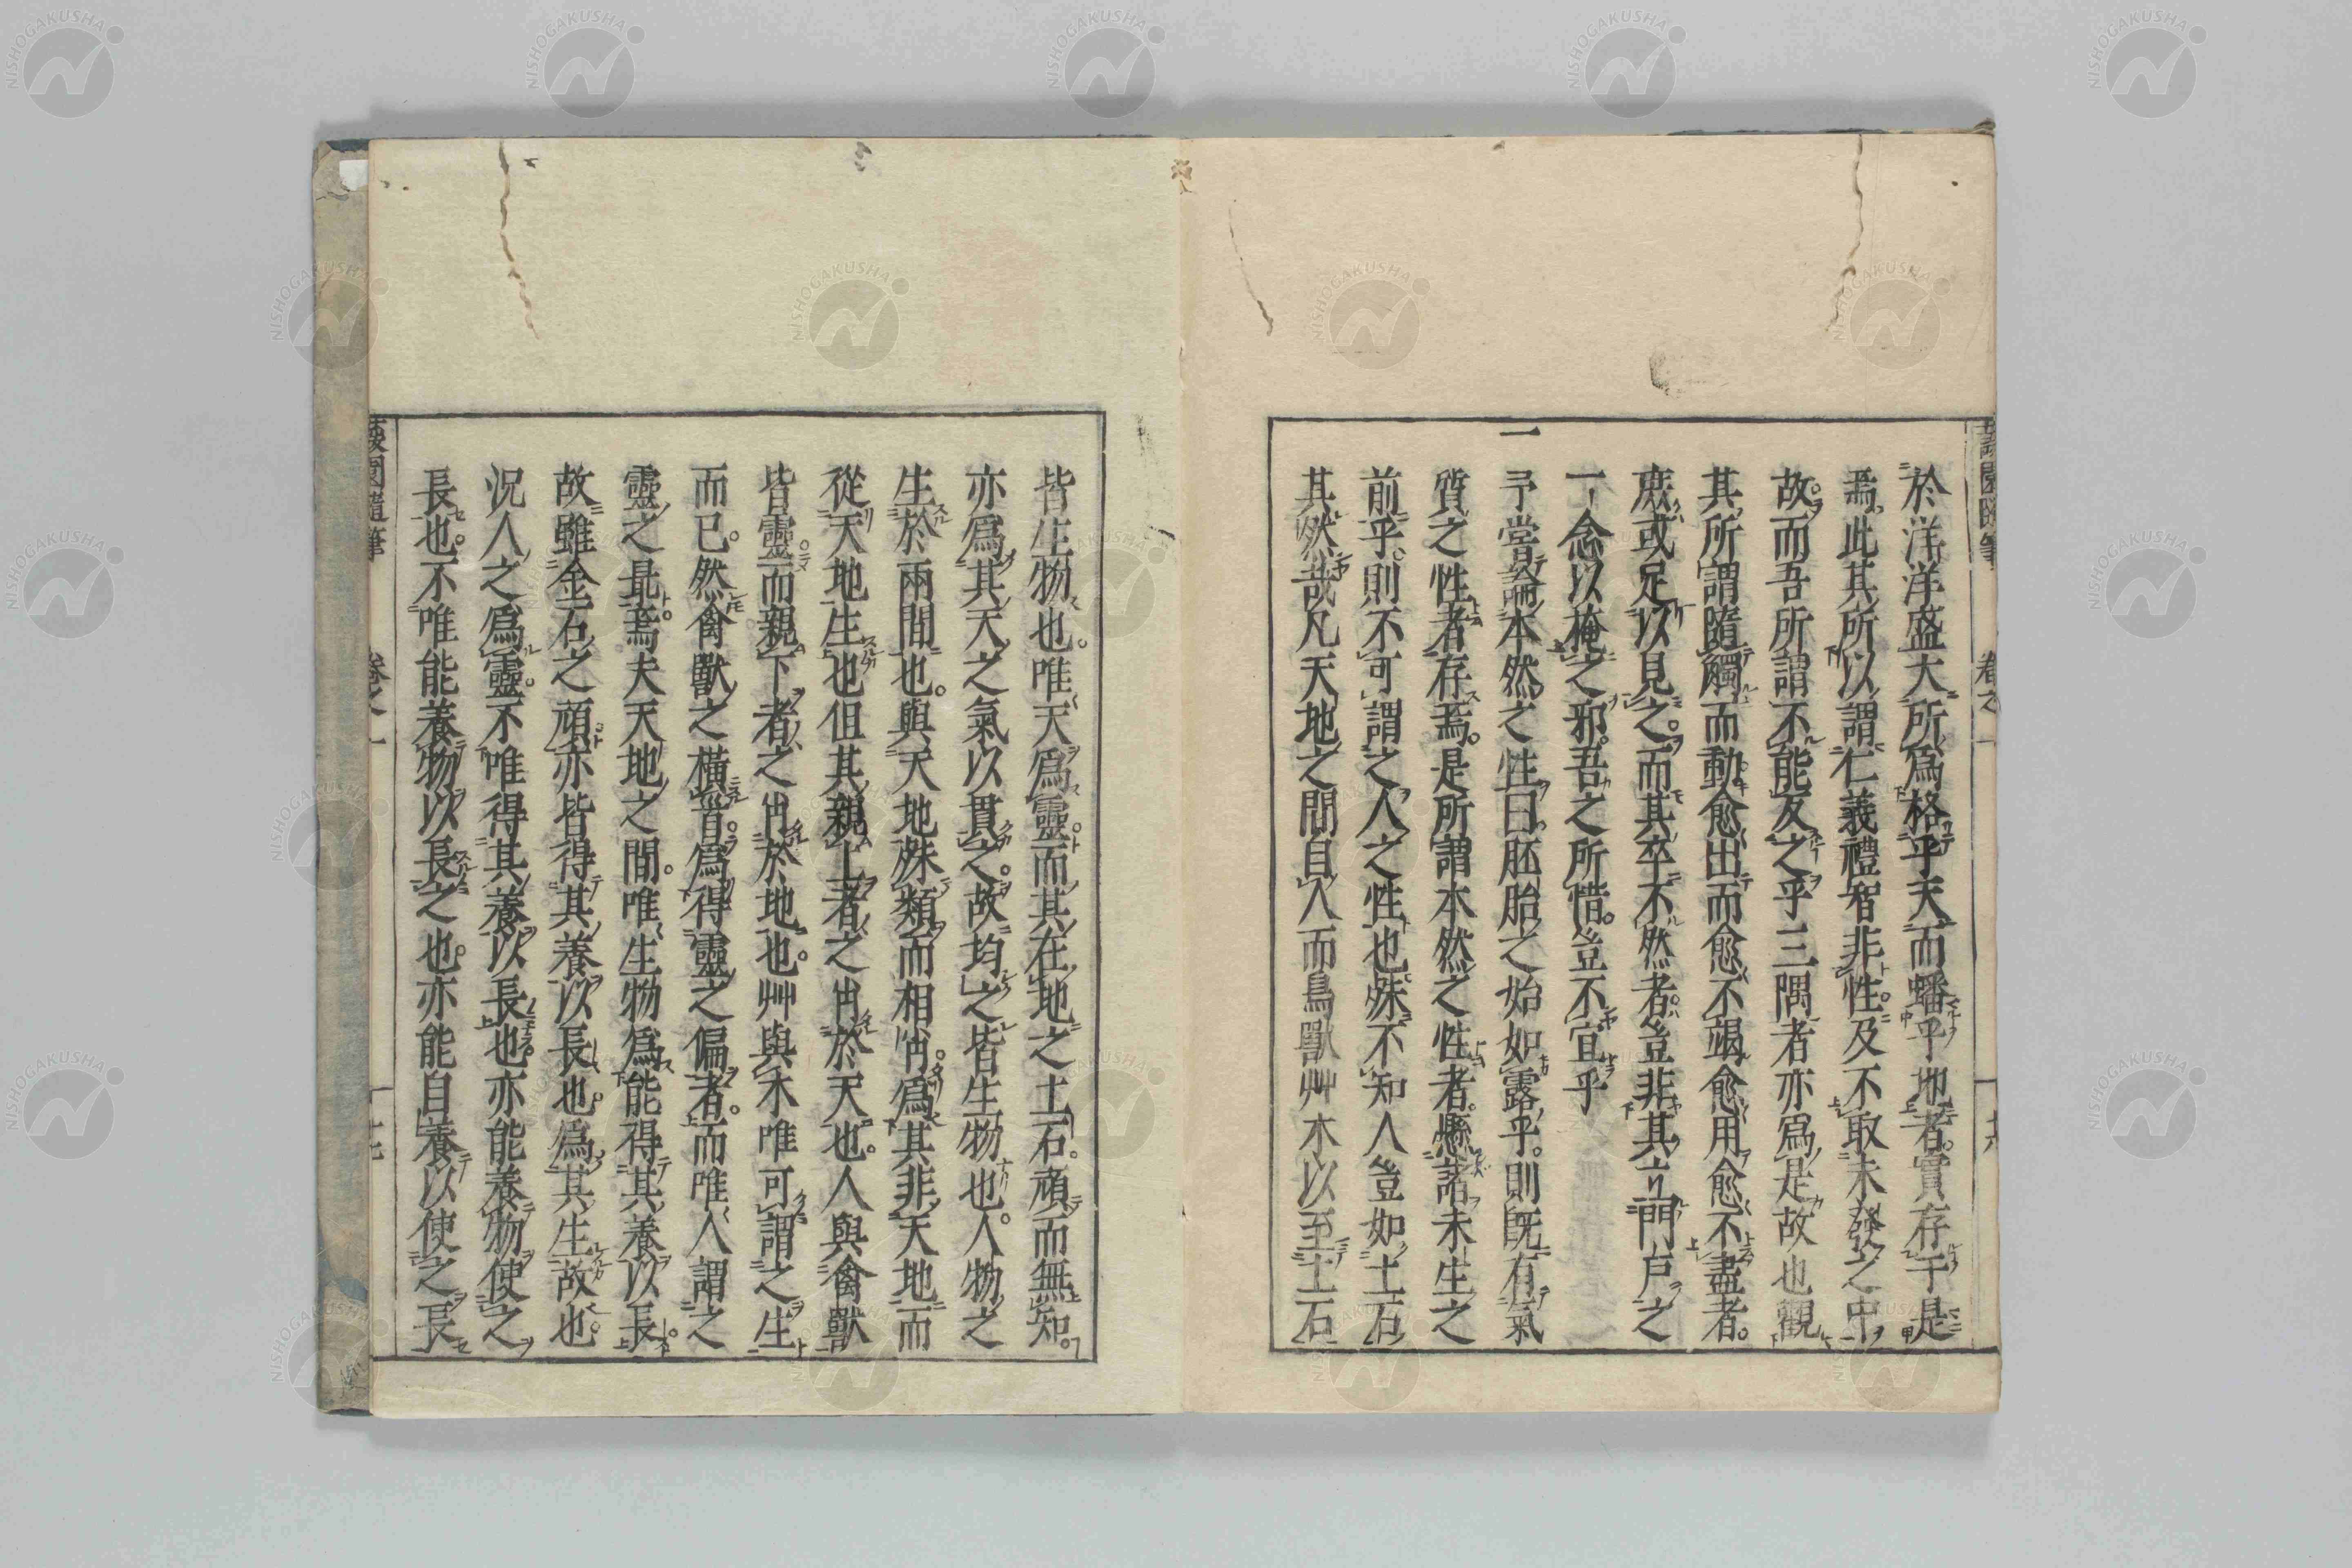 於洋洋盛大所為格乎天而蟠乎地者實存于是
焉此其所以謂仁義禮智非性及不取未發之中
故而吾所謂不能友之乎三隅者亦為是故也觀
其所謂隨觸而動愈出而愈不竭愈用愈不盡者
庶或足以見之而其卒不然者豈非其立門戸之
一念以掩之邪吾之所惜豈不宜乎
一予嘗論本然之性曰胚胎之始如露乎則既有氣
質之性者存焉是所謂本然之性者懸諸未生之
前乎則不可謂之人之性也殊不知人豈如土石
其然哉凡天地之間自人而鳥獸艸木以至土石
皆生物也唯天為靈而其在地之土石頑而無知
亦為其天之氣以貫之故均之皆生物也人物之
生於兩間也與天地殊類而相肖為其非天地而
從天地生也但其親上者之肖於天也人與禽獸
皆靈而親下者之肖於地也艸與木唯可謂之生
而已然禽獸之橫首為得靈之偏者而唯人謂之
靈之最焉夫天地之間唯生物為能得其養以長
故雖金石之頑亦皆得其養以長也為其生故也
況人之為靈不唯得其養以長也亦能養物使之
長也不唯能養物以長之也亦能自養以使之長
蘐園隨筆 卷之一 十六
蘐園隨筆 卷之一 十七
NISHOGAKUSHA